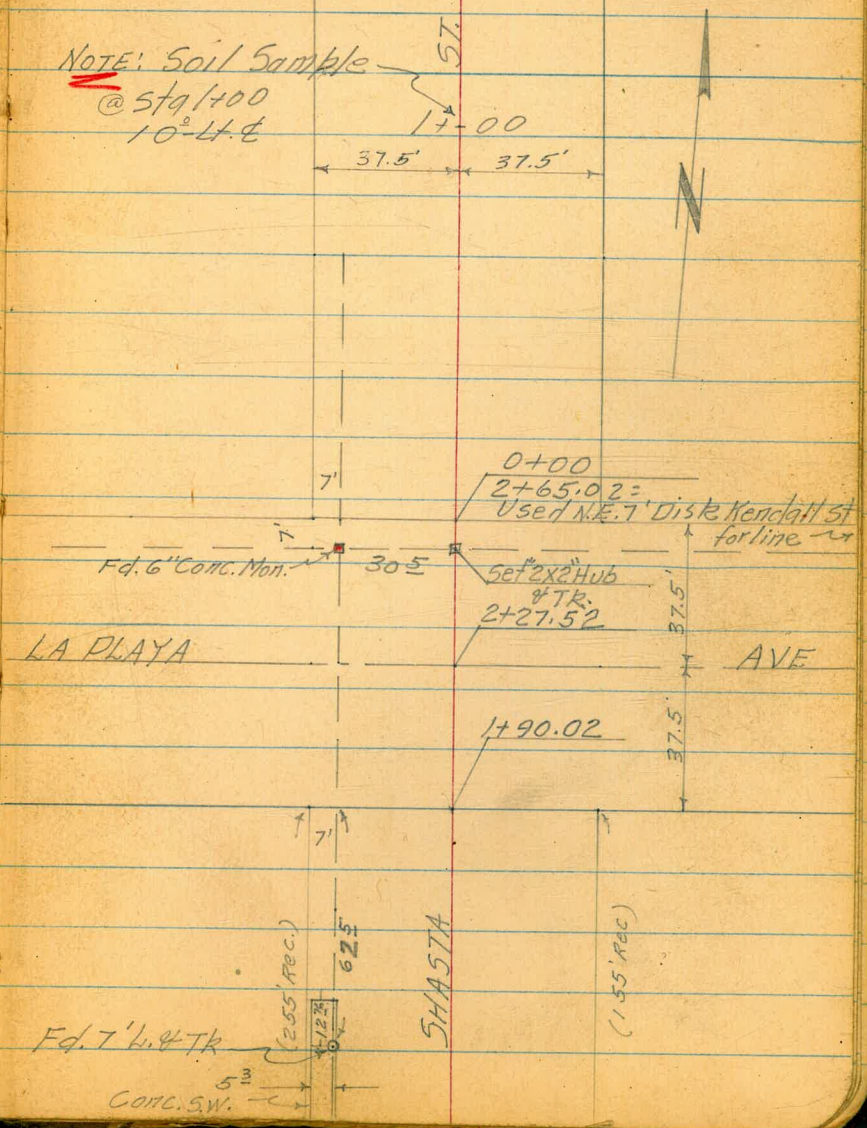 NOTE: Soil Sample
@ Sta 1+00
10º Lt. ₵
ST.
1+00
37.5' 37.5'
N
0+00
2+65.02=
Used N.E. 7' Disk Kendall St
for line
7'
7'
Fd. 6" Conc. Mon.
30 5
Set 2"x2" Hub
& Tk.
2+27.52
37.5'
LA PLAYA AVE
1+90.02
37.5'
7'
(255' Rec.)
62 5
SHASTA
(155' Rec)
Fd. 7' L. & Tk
5 3
Conc. S.W.